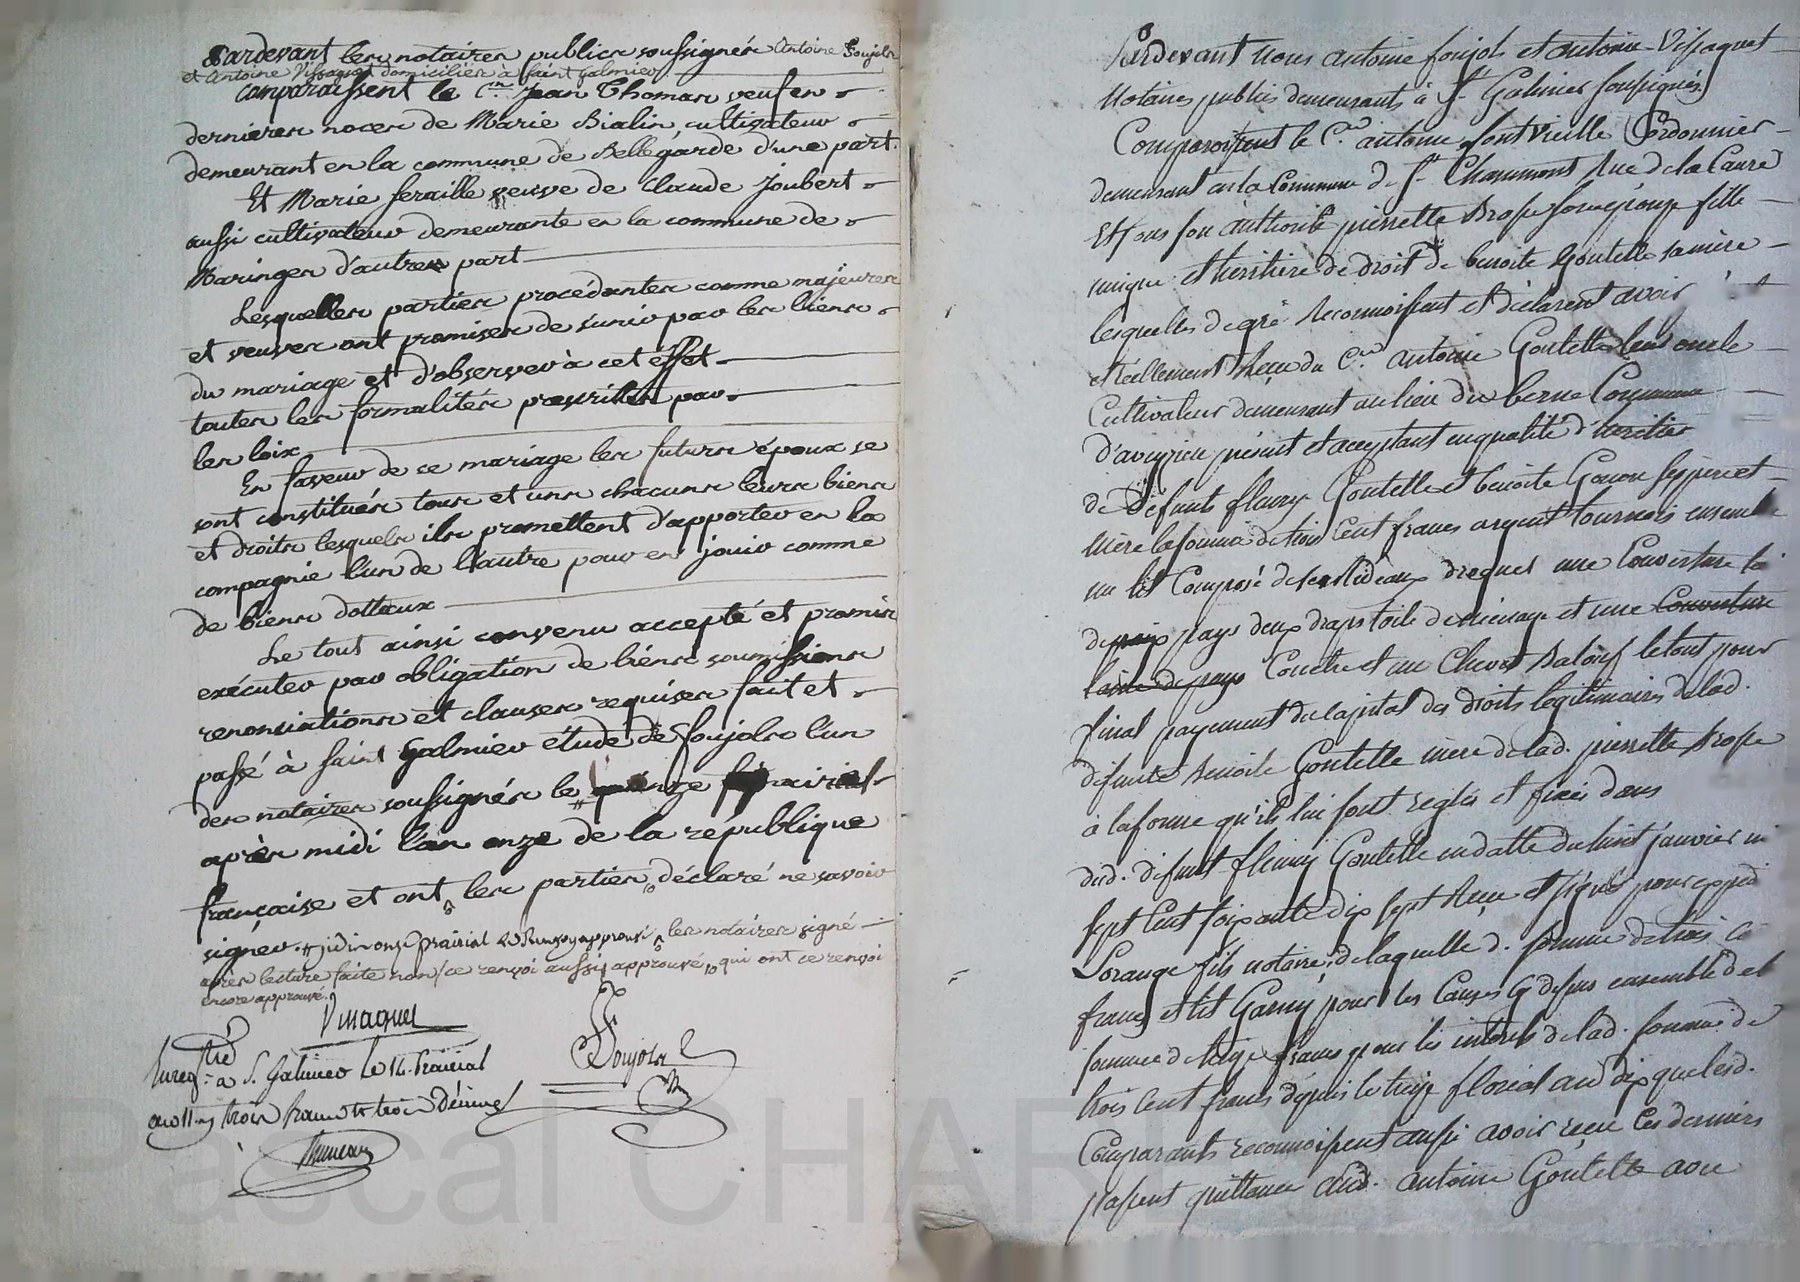 Pardevant les notaires publics soussignés Antoine Foujols
et Antoine Vissaguet domiciliés a saint Galmier
comparaissent le C.en Jean Thomas veuf en
dernieres noces de Marie Bialin, cultivateur
demeurant en la commune de Bellegarde d'une part.
Et Marie feraille veuve de Claude Joubert
aussi cultivateur demeurante en la commune de
Maringes d'autres part
Lesquelles parties procedantes comme majeures
et veuves ont promises de s'unir par les liens
du mariage et d'observer à cet éffet
toutes les formalités prescrites par
les loix
En faveur de ce mariage les futurs époux se
sont constitués tous et uns chacuns leurs biens
et droits lesquels ils promettent d'apporter en la
compagnie l'un de l'autre pour en jouir comme
de biens dottaux
Le tout ainsi convenu accepté et promis
exécuter par obligation de biens soumissions
renonciations et clauses requises fait et
passé à saint Galmier étude de foujols l'un
des notaires soussignés le quinze prairial
après midi l'an onze de la république
française et ont les parties déclaré ne savoir
signer. jidi onze prairial approuvé les notaires signé
après lecture faite non/ce renvoi aussi approuvé qui ont ce renvoi
encore approuvé.
Vissaguet
Foujols
Enreg.tré a S. Galmier le 14 Prairial
an 11 trois francs trois décimes
Pardevant nous antoine foujols et antoine Vissaguet
Notaires publics demeurants à S.t Galmier soussignés
Comparoissent le C.en antoine fontvieille Cordonnier
demeurant en la Commune de S.t Chaumont Rue de la Caure
Et sous son authorité pierrette Brosse son épouse fille
unique et heritiere de droit de benoite Goutelle sa mère
lesquelles de gré Reconnoissent et déclarent avoir
et réellement Reçu du C.en antoine Goutelle leur oncle
Cultivateur demeurant au lieu du berne Commune
d'aveyzieu présent et acceptant en qualité d'heritier
de Defunts fleury Goutelle et benoite Gonon ses père et
Mère la somme de trois Cent francs argent tournois ensemble
un lit Composé de ses rideaux une Couverture
de pays deux draps toile de ménage et une Couverture
laine de pays Couette et un Chevet Baloux le tout pour
final payement du Capital des droits legitimaires de lad.
défunte Benoite Goutelle mère de lad. pierrette Brosse
à la forme qu'ils lui sont reglés et fixés dans
dud. défunt fleury Goutelle en datte du huit janvier mi
sept Cent soixante dix sept Reçu et signé pour expéd
Lorange fils notaire, de laquelle d. somme de trois Ce
francs et lit Garny pour les Causes Cy dessus ensemble de l
somme de treize francs pour les intérêts de lad. somme de
trois Cent francs depuis le treize floréal an dix que lesd.
Comparants reconnoissent aussi avoir reçu Ces derniers
passent quittance aud. antoine Goutelle avec
Pascal CHAR